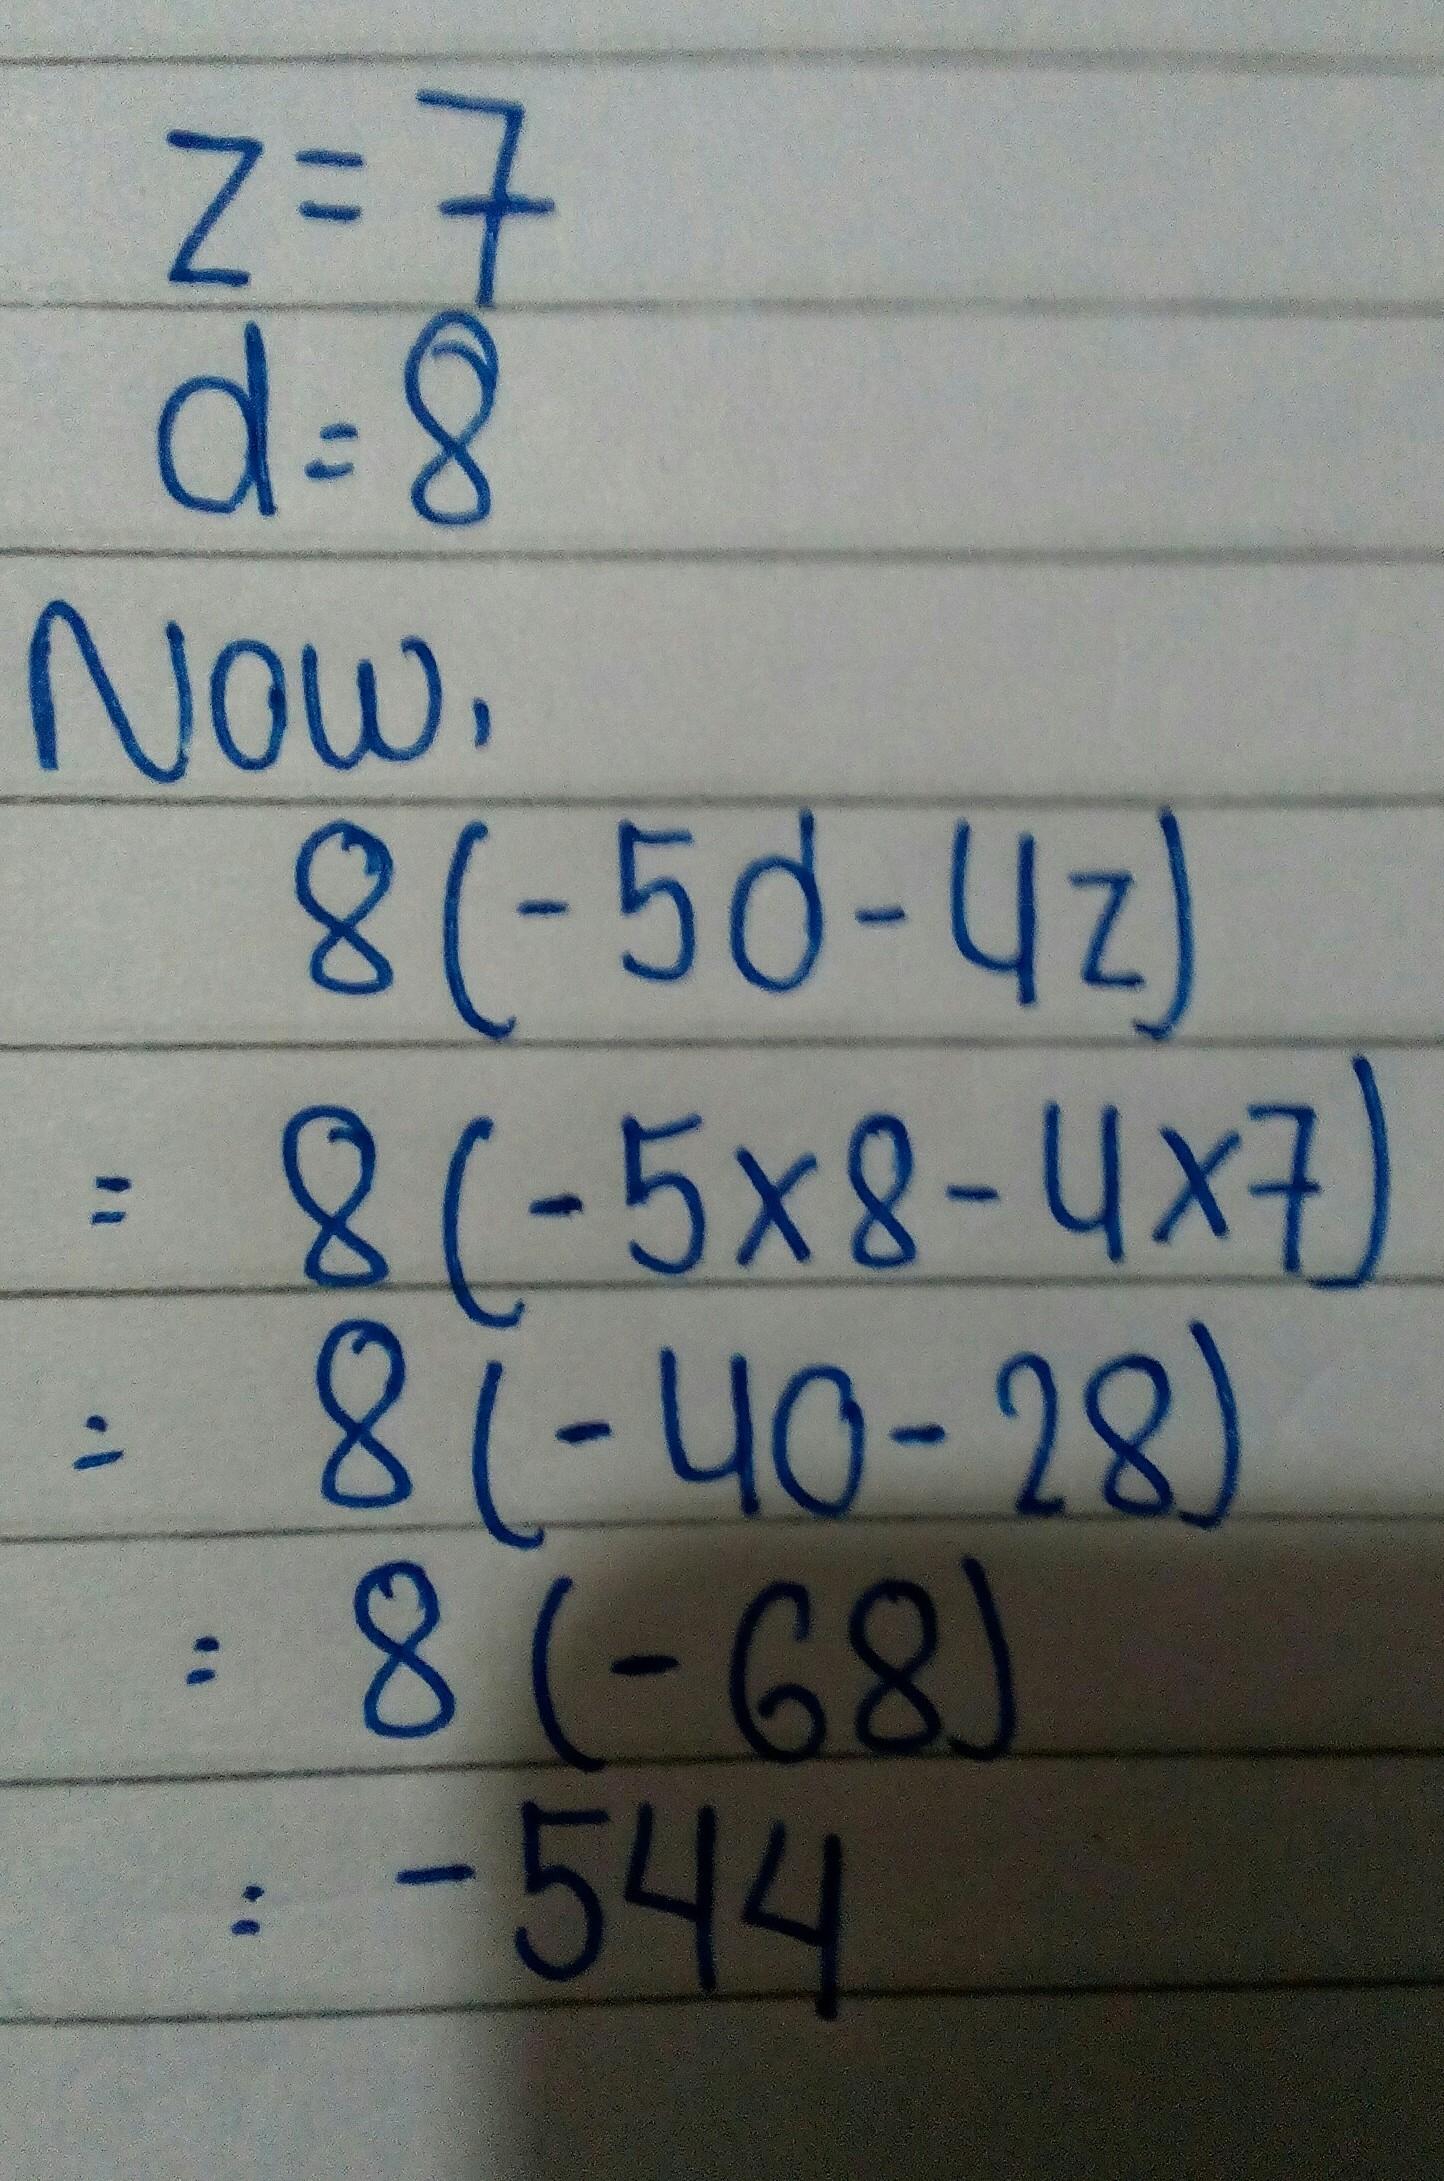 z = 7
d = 8
Now,
8(-5d-4z)
= 8(-5×8-4×7)
= 8(-40-28)
= 8(-68)
= -544